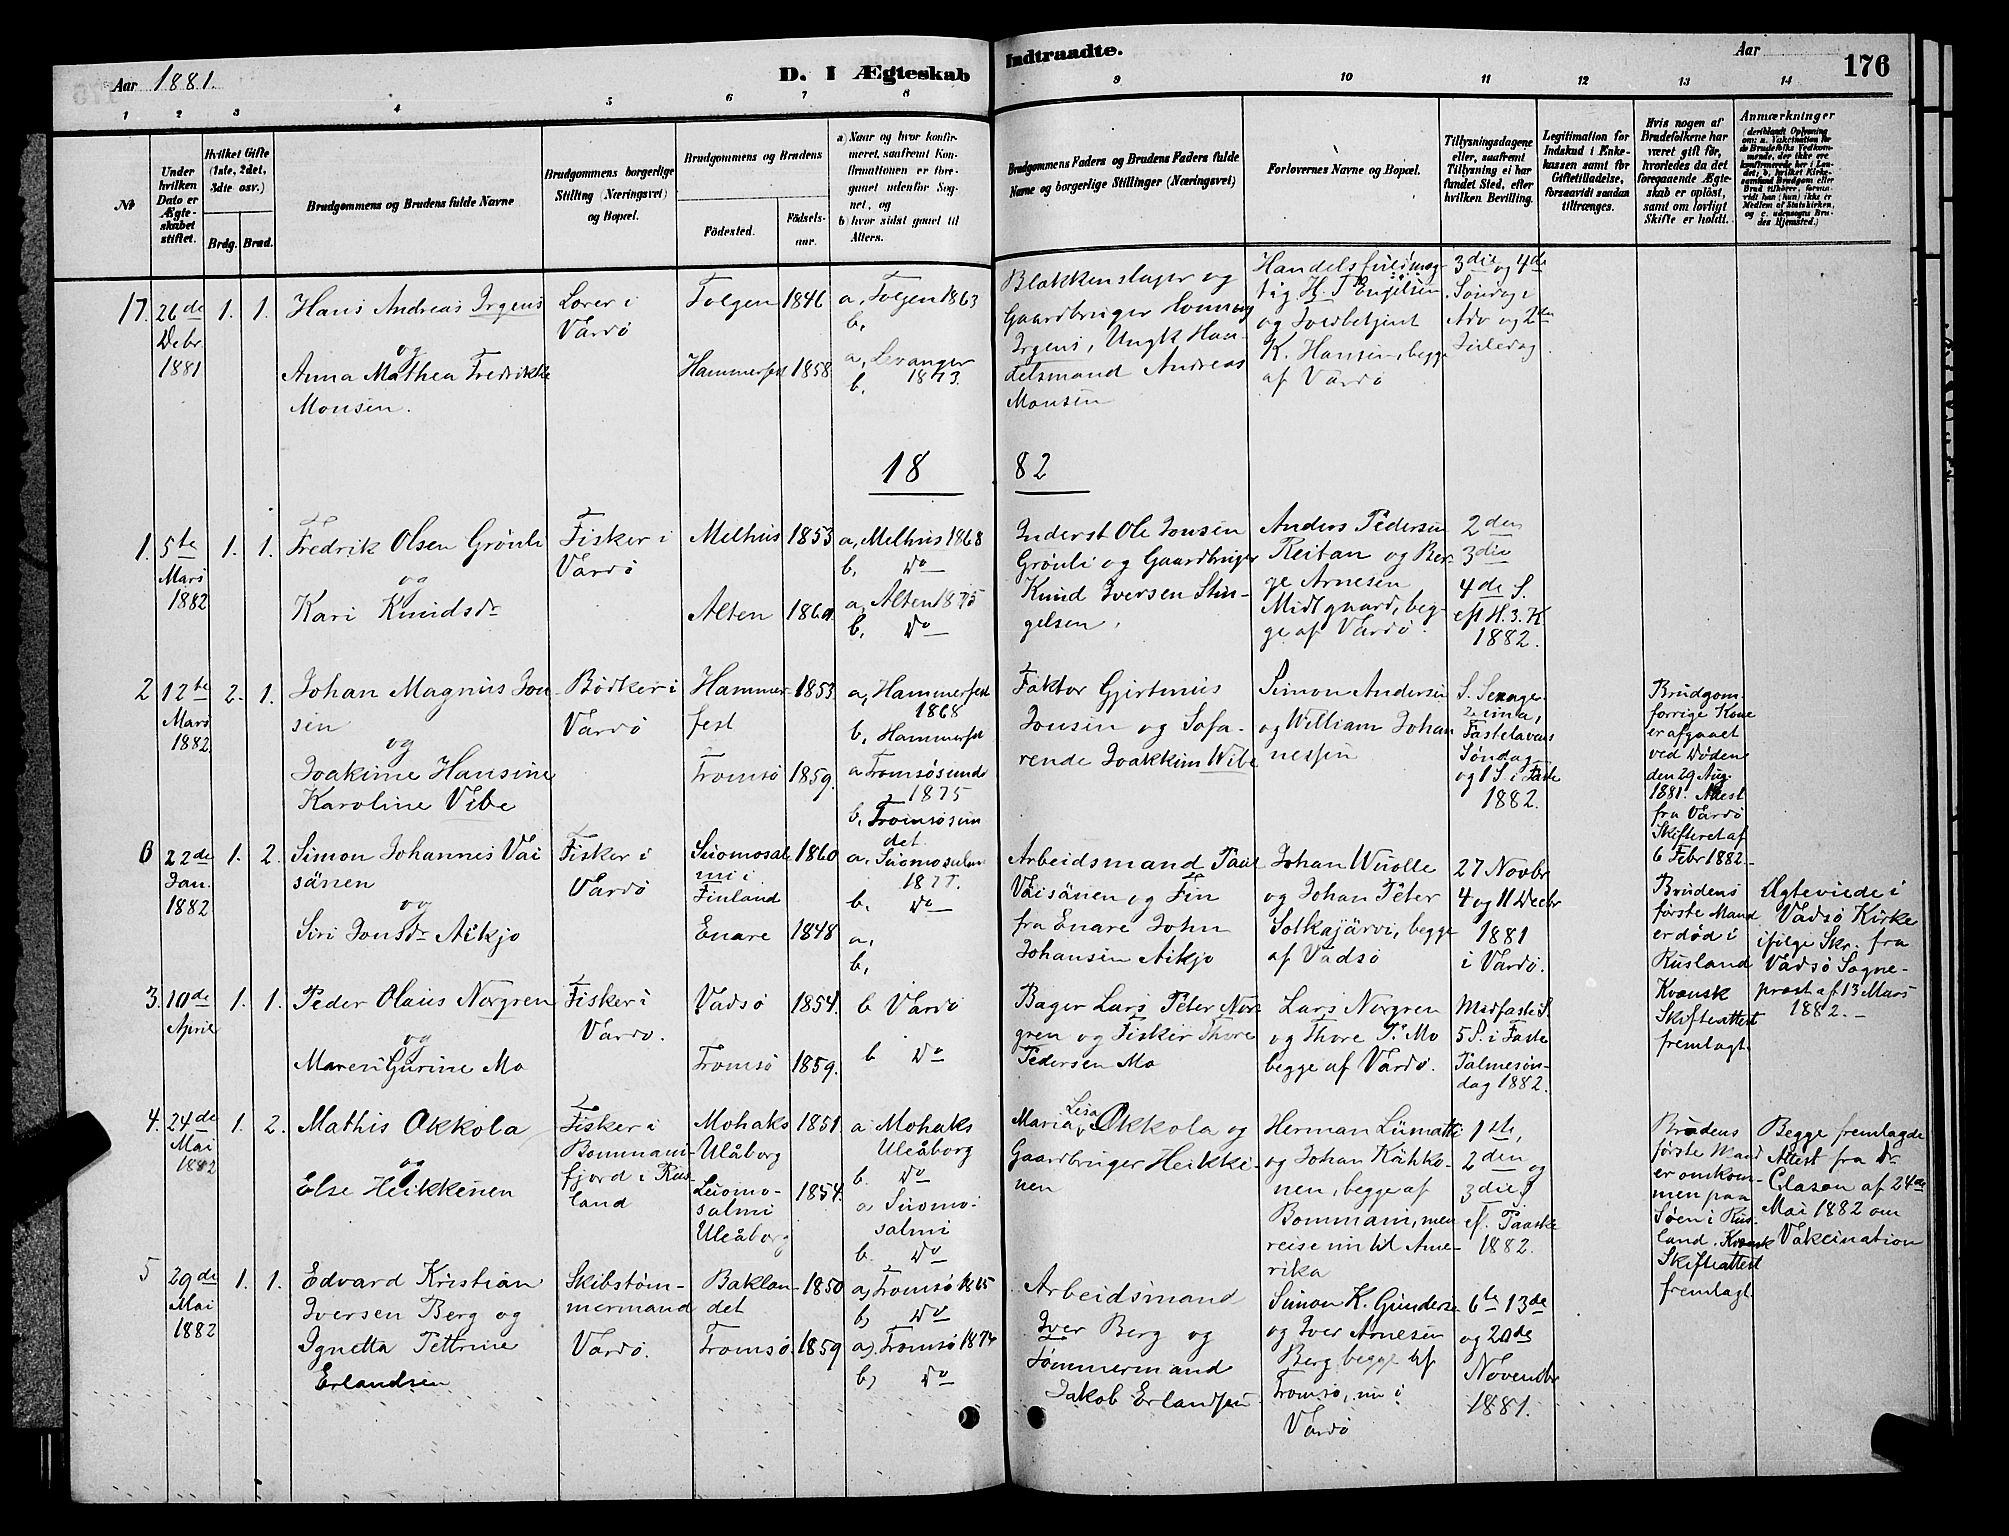 Aar 1881.
D. I Ægteskab
Indtraadte.
Aar
176
1 2 3 4 5 6 7 8 9 10 11 12 13 14
№
Under hvilken Dato er Ægteskabet stiftet.
Hvilket Gifte (1ste, 2det, 3die osv.)
Brdg. Brud.
Brudgommens og Brudens fulde Navne
Brudgommens borgerlige Stilling (Næringsvei) og Bopæl.
Brudgommens og Brudens
Födested. Födselsaar.
a) Naar og hvor konfirmeret, saafremt Konfirmationen er foregaaet udenfor Sognet, og
b) hvor sidst gaaet til Alters.
Brudgommens Faders og Brudens Faders fulde Navne og borgerlige Stillinger (Næringsvei)
Forlovernes Navne og Bopæl.
Tillysningsdagene eller, saafremt Tillysning ei har fundet Sted, efter hvilken Bevilling.
Legitimation for Indskud i Enkekassen samt for Giftetilladelse, forsaavidt saadan tiltrænges.
Hvis nogen af Brudefolkene har været gift för, hvorledes da det foregaaende Ægteskab er oplöst, samt om lovligt Skifte er holdt.
Anmærkninger
17. 26de Debr 1881
1. 1.
Hans Andreas Irgens
og
Anna Mathea Fredrikke
Monsen.
Lærer i
Vardö
Tolgen 1846
Hammerfest 1858
a, Tolgen 1863
b,
a, Levanger
1873.
b.
Blokkenslager og
Gaardbruger Henning
Irgens, Ungk Han-
delsmand Andreas
Monsen
Handelsfuldmæg-
tig H. T Engelsen
og Toldbetjent
K. Hansen, begge
af Vardö
3die og 4de
Söndag i
Adv og 2den
Juledag
18 82
1. 5te Mars 1882
1. 1.
Fredrik Olsen Grönli
og
Kari Knudsdr
Fisker i
Vardö
Melhus 1853
Alten 1860
a, Melhus 1868
b, Do
a, Alten 1875
b. Do
Inderst Ole Jonsen
Grönli og Gaardbruger
Knud Iversen Stin-
gelsen.
Anders Pedersen
Reitan og Ber-
ge Arnesen
Midtgaard, beg-
ge af Vardö.
2den
3die
4de S.
eft H. 3. K.
1882.
2 12te Mars 1882
2. 1.
Johan Magnus Jon-
sen
og
Joakime Hansine
Karoline Vibe
Bödker i
Vardö
Hammer-
fest 1853
Tromsö 1859.
a, Hammerfest
1868
b, Hammerfest
a Tromsösund
1875
b, Tromsösun
det.
Faktor Gjertinius
Jonsen og Sofa-
rende Joakkim Wibe
Simon Andersen
og William Johan
nessen
S. Sexage-
sima,
Fastelavens
Söndag
og 1 S i Faste
1882.
Brudgom.
forrige Kone
er afgaaet
ved Döden
den 29 Aug.
1881. Attest
fra Vardö
Skifteret af
6 Febr 1882.
6 22de Jan. 1882
1. 2.
Simon Johannes Vai
sänen
og
Siri Jonsdr Aikjo
Fisker i
Vardö
Suomosal
mi i
Finland 1860
Enare 1848
a, Suomosalmi
1877.
b. Do
a,
b,
Arbeidsmand Paul
Vaisänen og Fin
fra Enare John
Johansen Aikjo
Johan Wuolle
og Johan Peter
Sotkajärvi, begge
af Vadsö
27 Novbr
4 og 11 Decbr
1881
i Vardö.
Brudens
förste Mand
er död i
Rusland
Kvænsk
Skifteattest
fremlagt.
Ægteviede i
Vadsö Kirke
ifölge Skr. fra
Vadsö Sogne-
præst af 13 Mars
1882.
3. 10de April
1. 1.
Peder Olaus Norgren
og
Maren Gurine Mo
Fisker i
Vardö.
Vadsö 1854.
Tromsö 1859.
b Vardö
b Do
Bager Lars Peter Nor-
gren og Fisker Thore
Pedersen Mo
Lars Norgren
og Thore P. Mo
begge af Vardö.
Midfaste S.
5 S. i Faste
Palmesön-
dag 1882.
4. 24de Mai 1882
1. 2.
Mathis Okkola
og
Else Heikkenen
Fisker i
Bommani-
fjord i Rus-
land
Mohaks
Ulåborg 1851.
Suomo-
salmi
Uleåborg 1854.
a Mohaks
Uleåborg
b. Do
a, Suomo-
salmi
b. Do
Maria Lisa Okkola og
Gaardbruger Heikki-
nen
Herman Liimatti
og Johan Kähko-
nen, begge af
Bommani, men
reise nu til Ame-
rika
1ste,
2den og
3die S
ef. Paaske
1882.
Brudens
förste Mand
er omkom-
men paa
Söen i Rus-
land. Kvænsk
Skifteattest
fremlagt
Begge fremlagde
Attest fra Dr
Clason af 24de
Mai 1882 om
Vakcination
5 29de Mai 1882
1. 1.
Edvard Kristian
Iversen Berg og
Ignetta Pettrine
Erlandsen
Skibstöm-
mermand
Vardö.
Baklan-
det 1850
Tromsö. 1859
a, Tromsö 1865
b, Do
a, Tromsö 1874
b, Do
Arbeidsmand
Iver Berg og
Tömmermand
Jakob Erlandsen
Simon K. Gundersen
og Iver Arnesen
Berg begge af
Tromsö, nu i
Vardö
6te 13de
og 20de
Novembr
1881.